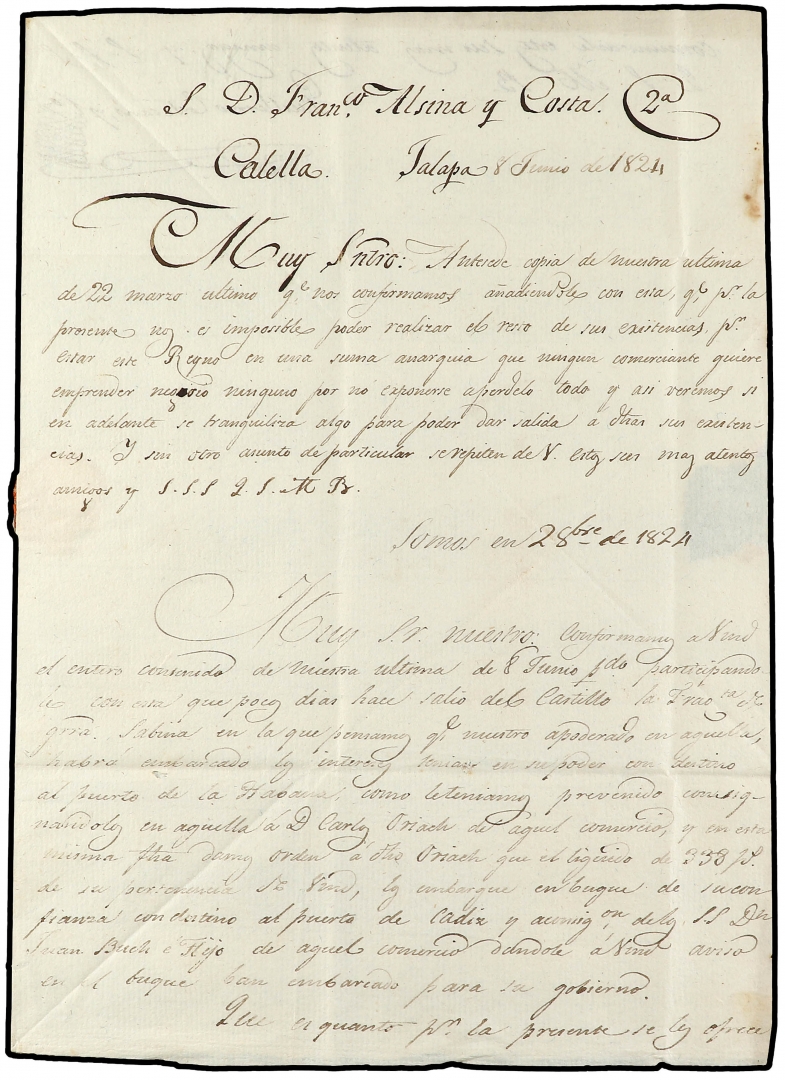 S. D. Franco. Alsina y Costa. 2a
Calella. Jalapa 8 Junio de 1824
Muy Sntro: Antesede copia de nuestra ultima
de 22 marzo ultimo qe. nos confirmamos añadiendole con esta, qe. pr. la
presente nos es imposible poder realizar el resto de sus existencias, pr.
estar este Reyno en una suma anarquia que ningun comerciante quiere
emprender negosio ninguno por no exponerse aperdelo todo y asi veremos si
en adelante se tranquiliza algo para poder dar salida a dhas sus existen-
cias. Y sin otro asunto de particular se repiten de V. estos sus mas atentos
amigos y S.S.S Q.S.M.B.
Somos en 28bre de 1824
Muy Sr. nuestro: Confirmamos a Vmd
el entero contenido de nuestra ultima de 8 Junio pdo. participando-
le con esta que pocos dias hace salio del Castillo la Fragta de
grra. Sabina en la que pensamos qe. nuestro apoderado en aquella,
habrá embarcado los intereses teniase en su poder con destino
al puerto de la Habana, como leteniamos prevenido consig-
nandolos en aquella á D Carlos Oriach de aquel comercio, y en esta
misma fha damos orden á dho Oriach que el liquido de 353 ps.
de su pertenencia de Vmd, los embarque en buque de su con
fianza con destino al puerto de Cadiz y a consigon. de los S.S Dn
Juan Buch é Hijo de aquel comercio dandole á Vmd aviso
en el buque han embarcado para su gobierno.
Que es quanto pr. la presente se les ofrece